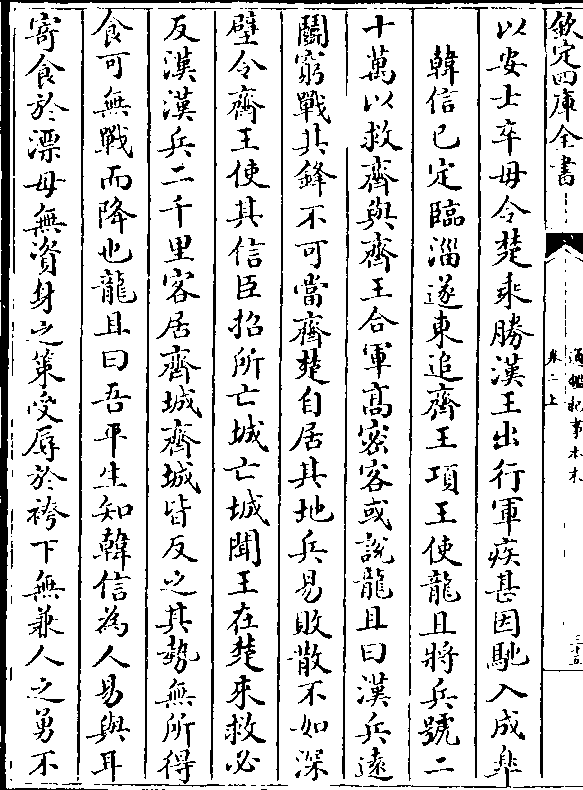 欽定四庫全書
通鑑紀事本末
卷二上
三十五
以安士卒毋令楚乘勝漢王出行軍疾甚因馳入成臯
韓信已定臨淄遂東追齊王項王使龍且將兵號二
十萬以救齊與齊王合軍髙密客或說龍且曰漢兵遠
鬭窮戰其鋒不可當齊楚自居其地兵易敗散不如深
壁令齊王使其信臣招所亡城亡城聞王在楚來救必
反漢漢兵二千里客居齊城齊城皆反之其勢無所得
食可無戰而降也龍且曰吾平生知韓信為人易與耳
寄食於漂母無資身之策受辱於袴下無兼人之勇不